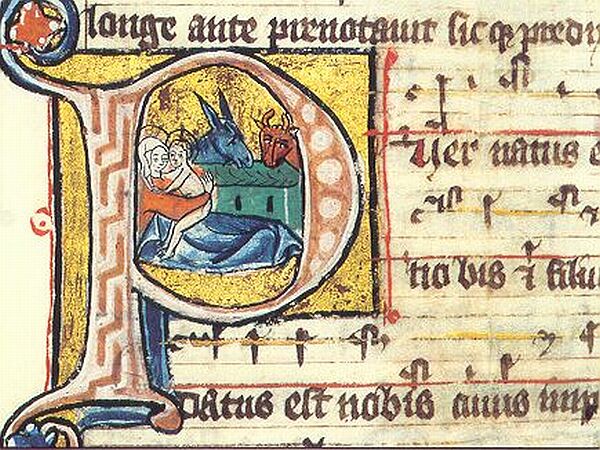 longe ante prenotauit sic qꝫ predi
Puer natus e
no bis ⁊ filiu
datus est nobis cuius imp